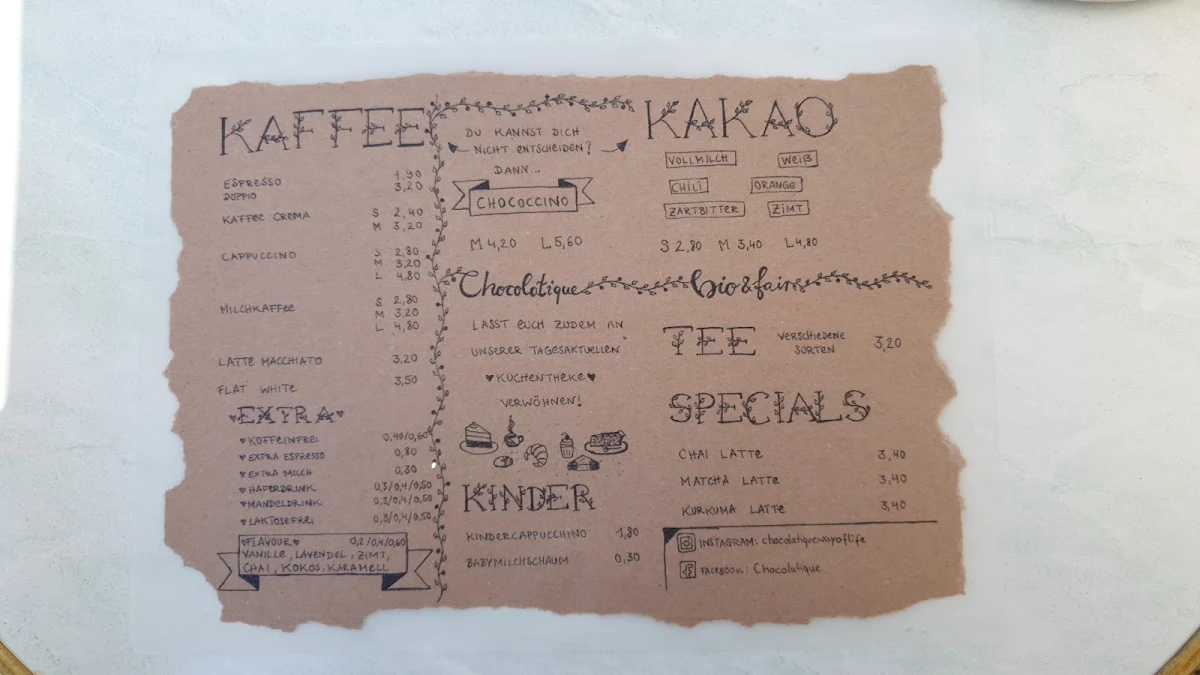 KAFFEE
ESPRESSO 1,90
DOPPIO 3,20
KAFFEE CREMA S 2,40
M 3,20
CAPPUCCINO S 2,80
M 3,20
L 4,80
MILCHKAFFEE S 2,80
M 3,20
L 4,80
LATTE MACCHIATO 3,20
FLAT WHITE 3,50
♥EXTRA♥
♥KOFFEINFREI 0,40/0,60
♥EXTRA ESPRESSO 0,80
♥EXTRA MILCH 0,30
♥HAFERDRINK 0,3/0,4/0,50
♥MANDELDRINK 0,3/0,4/0,50
♥LAKTOSEFREI 0,3/0,4/0,50
♥FLAVOUR♥ 0,2/0,4/0,60
VANILLE, LAVENDEL, ZIMT,
CHAI, KOKOS, KARAMELL
DU KANNST DICH
NICHT ENTSCHEIDEN?
DANN...
CHOCOCCINO
M 4,20 L 5,60
KAKAO
VOLLMILCH WEIß
CHILI ORANGE
ZARTBITTER ZIMT
S 2,80 M 3,40 L 4,80
Chocolatique bio&fair
LASST EUCH ZUDEM AN
UNSERER TAGESAKTUELLEN
♥KUCHENTHEKE♥
VERWÖHNEN!
KINDER
KINDERCAPPUCCHINO 1,80
BABYMILCHSCHAUM 0,30
TEE VERSCHIEDENE
SORTEN 3,20
SPECIALS
CHAI LATTE 3,40
MATCHA LATTE 3,40
KURKUMA LATTE 3,40
INSTAGRAM: chocolatiquewayoflife
FACEBOOK: Chocolatique